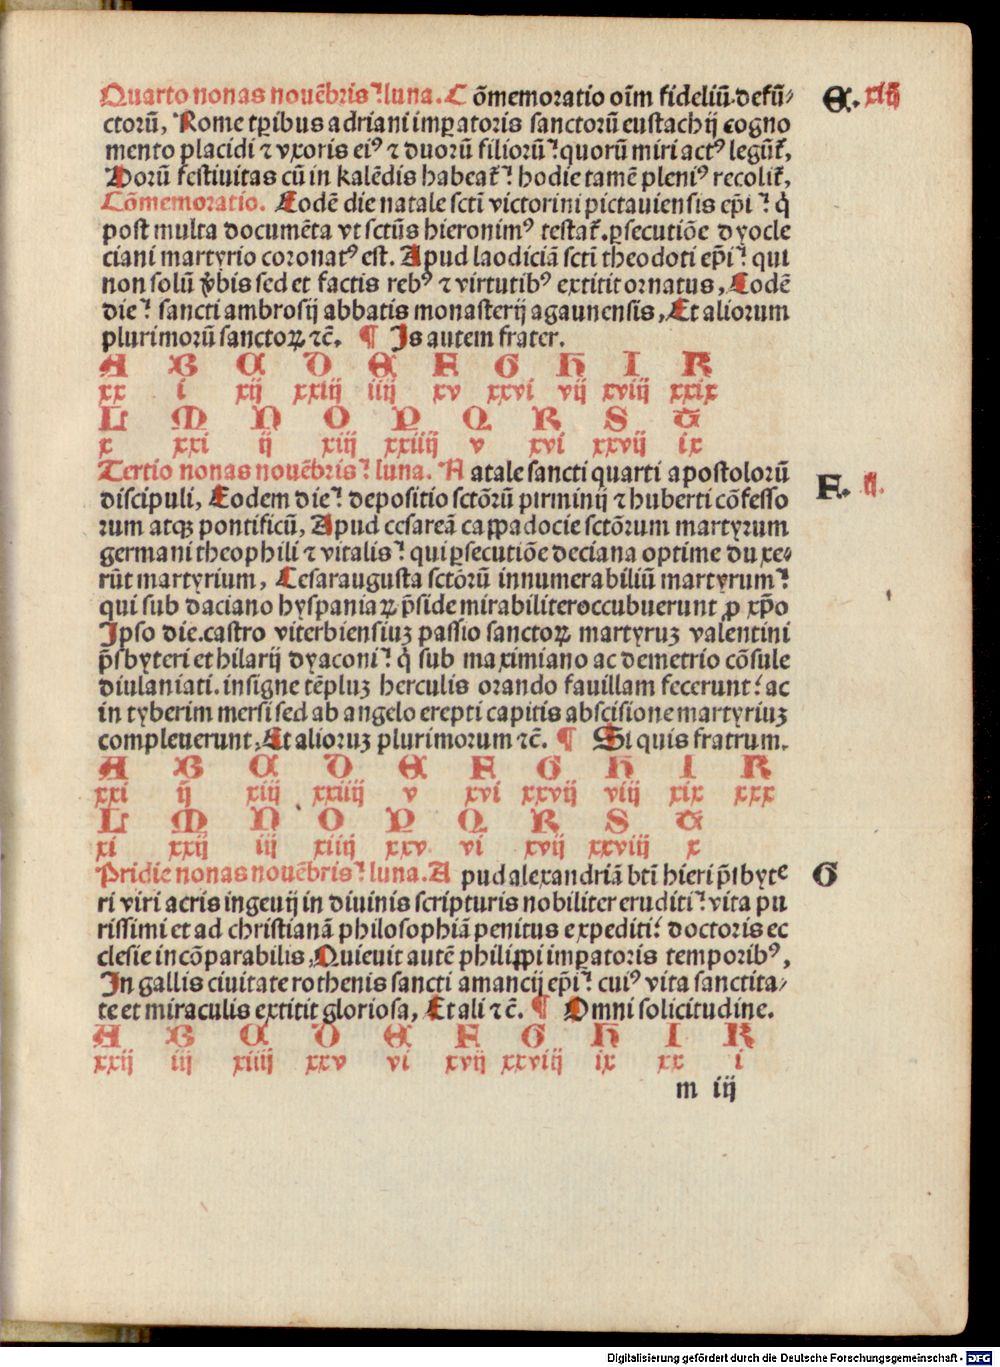 Quarto nonas nouēbris⁊ luna. Cōmemoratio oīm fideliū.defū⸗ E. xiij
ctorū, Rome tꝑibus adriani imꝑatoris sanctorū eustachij cogno
mento placidi ⁊ vxoris eiꝰ ⁊ duorū filiorū: quorū miri actꝰ legūt̄,
Horū festiuitas cū in kalēdis habeat̄: hodie tamē pleniꝰ recolit̄,
Cōmemoratio. Eodē die natale sctī victorini pictauiensis ep̄i: q̇
post multa documēta vt sctūs hieronimꝰ testat̄. ꝑsecutiōe dyocle
ciani martyrio coronatꝰ est. Apud laodiciā sctī theodoti ep̄i: qui
non solū v̄bis sed et factis rebꝰ ⁊ virtutibꝰ extitit ornatus, Eodē
die: sancti ambrosij abbatis monasterij agaunensis, Et aliorum
plurimorū sanctoꝝ ⁊c̄. ¶ Is autem frater.
A B C D E F G H I K
xx i xij xxiij iiij xv xxvi vij xviij xxix
L M N O P Q R S T
x xxi ij xiij xxiiij v xvi xxvij ix
Tertio nonas nouēbris: luna. Natale sancti quarti apostolorū
discipuli, Eodem die: depositio sctōrū pirminij ⁊ huberti cōfesso F. ij.
rum atqꝫ pontificū, Apud cesareā cappadocie sctōrum martyrum
germani theophili ⁊ vitalis: qui ꝑsecutiōe deciana optime duxe⸗
rūt martyrium, Cesaraugusta sctōrū innumerabiliū martyrum:
qui sub daciano hyspaniaꝝ p̄side mirabiliter occubuerunt ꝓ xp̄o
Ipso die.castro viterbiensiuꝫ passio sanctoꝝ martyruꝫ valentini
p̄sbyteri et hilarij dyaconi: q̇ sub maximiano ac demetrio cōsule
diulaniati.insigne tēpluꝫ herculis orando fauillam fecerunt: ac
in tyberim mersi sed ab angelo erepti capitis abscisione martyriuꝫ
compleuerunt, Et alioruꝫ plurimorum ⁊c̄. ¶ Si quis fratrum.
A B C D E F G H I K
xxi ij xiij xxiiij v xvi xxvij viij xix xxx
L M N O P Q R S T
xi xxij iij xiiij xxv vi xvij xxviij x
Pridie nonas nouēbris: luna. Apud alexandriā btī hieri p̄sbyte G
ri viri acris ingenij in diuinis scripturis nobiliter eruditi: vita pu
rissimi et ad christianā philosophiā penitus expediti: doctoris ec
clesie incōparabilis, Quieuit autē philippi imꝑatoris temporibꝰ,
In gallis ciuitate rothenis sancti amancij ep̄i: cuiꝰ vita sanctita⸗
te et miraculis extitit gloriosa, Et ali ⁊c̄. ¶ Omni solicitudine.
A B C D E F G H I K
xxij iij xiiij xxv vi xvij xxviij ix xx i
m iij
Digitalisierung gefördert durch die Deutsche Forschungsgemeinschaft - DFG